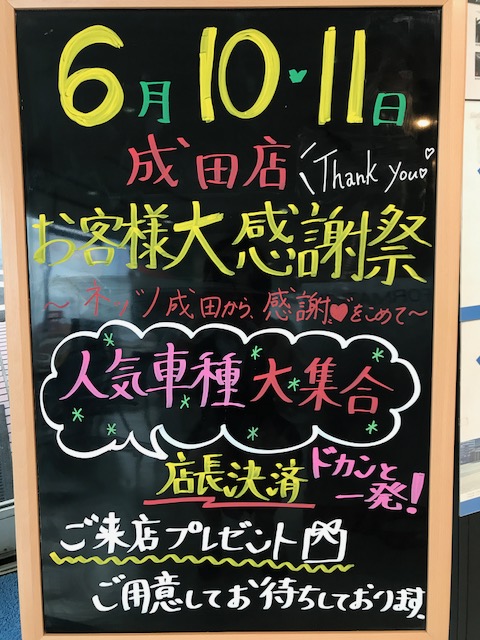 6月10・11日
成田店 Thank you
お客様大感謝祭
〜ネッツ成田から、感謝をこめて〜
人気車種大集合
店長決済 ドカンと一発!
ご来店プレゼント
ご用意してお待ちしております。